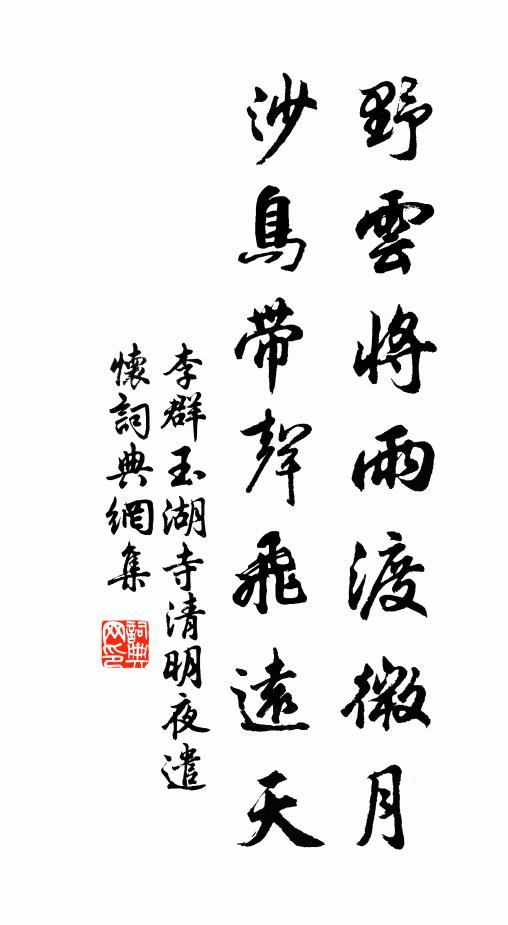 野雲將雨渡微月
沙鳥帶聲飛遠天
李群玉湖寺清明夜遣
懷詞典網集
詞典
网印